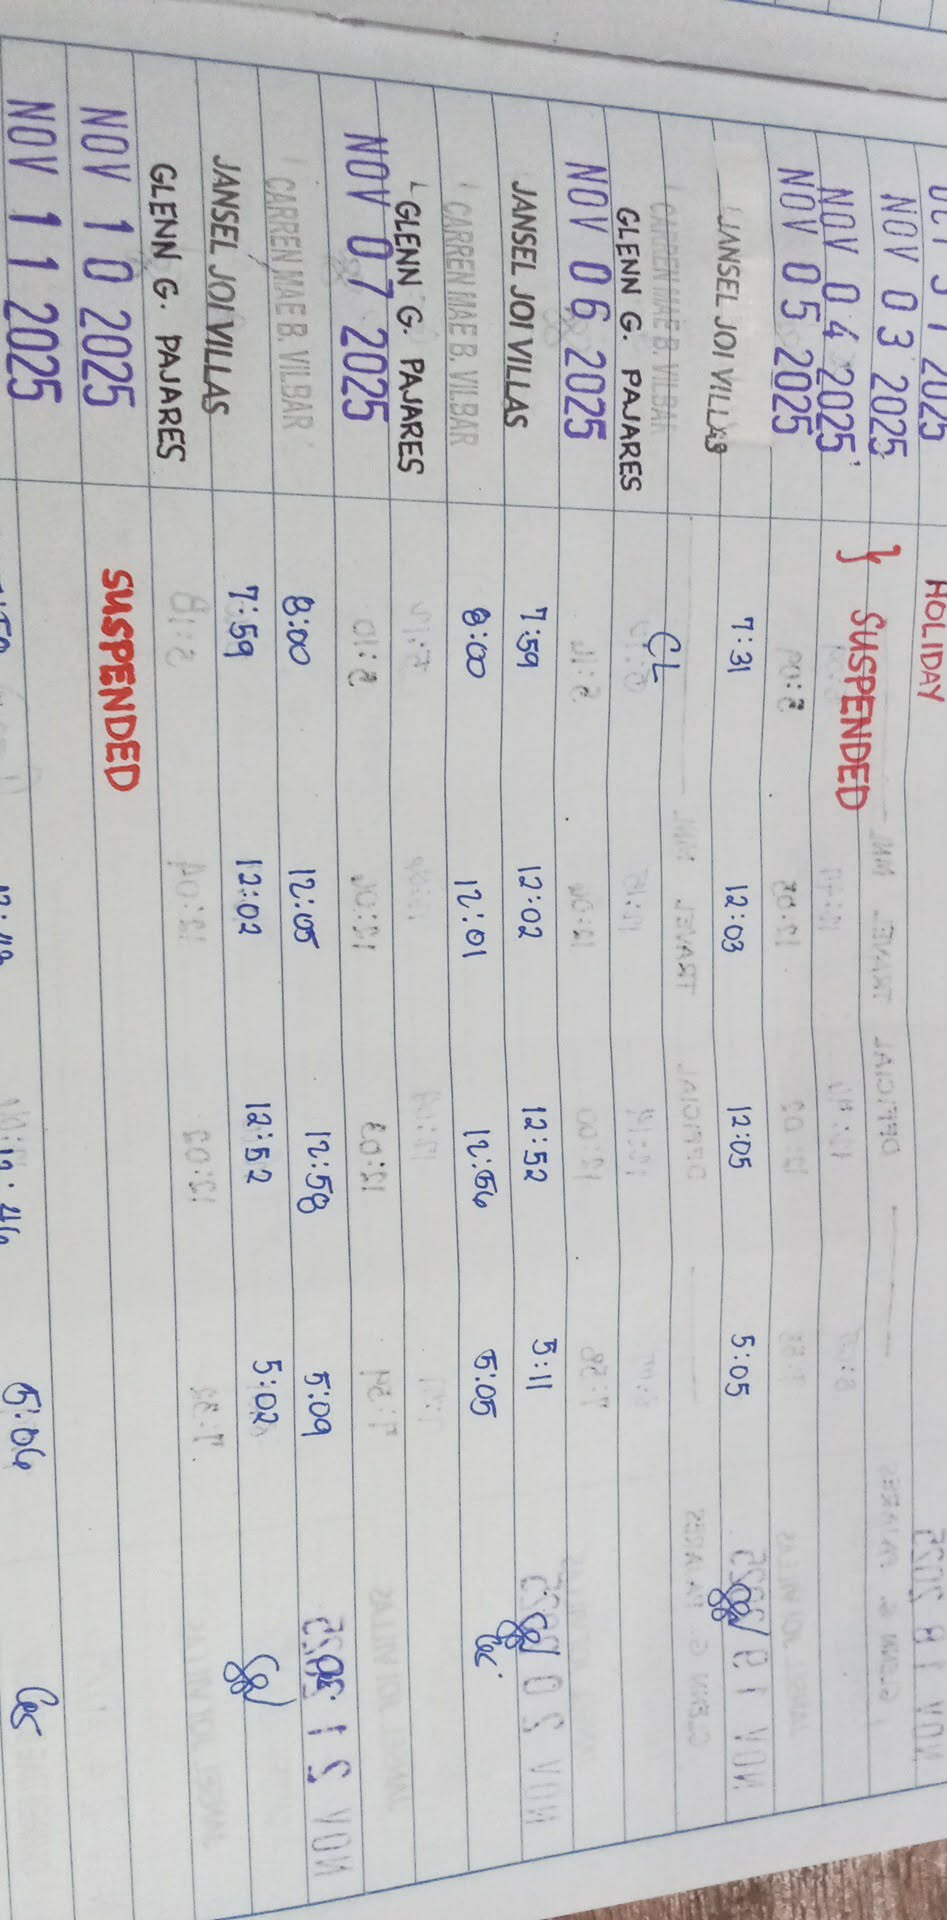 2025 HOLIDAY
NOV 03 2025 } SUSPENDED
NOV 04 2025
NOV 05 2025
JANSEL JOI VILLAS 7:31 12:03 12:05 5:05
CARREN MAE B. VILBAR CL
GLENN G. PAJARES
NOV 06 2025
JANSEL JOI VILLAS 7:59 12:02 12:52 5:11
CARREN MAE B. VILBAR 8:00 12:01 12:56 5:05
GLENN G. PAJARES
NOV 07 2025
CARREN MAE B. VILBAR 8:00 12:05 12:58 5:09
JANSEL JOI VILLAS 7:59 12:02 12:52 5:02
GLENN G. PAJARES
NOV 10 2025 SUSPENDED
NOV 11 2025
5:06